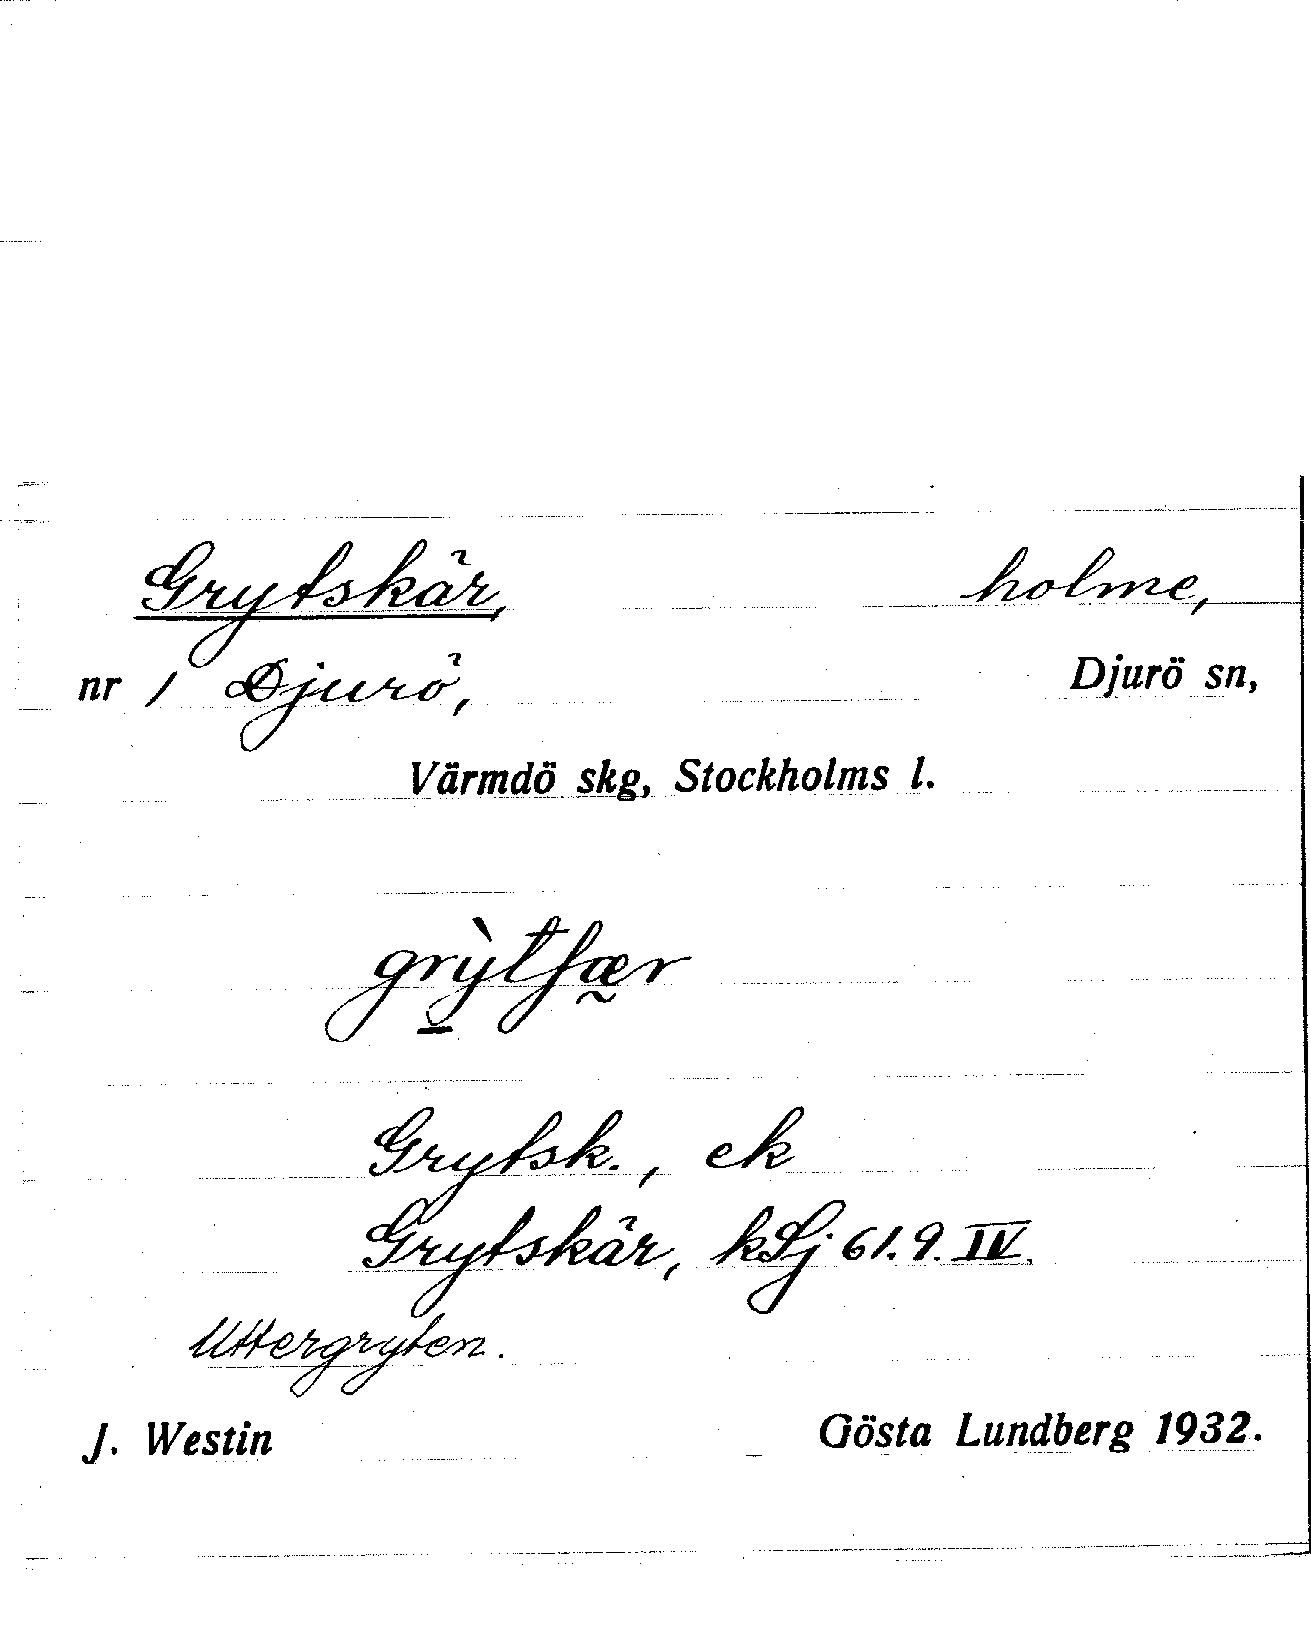 Grytskär, holme,
nr 1 Djurö, Djurö sn,
Värmdö skg, Stockholms l.
grỳtſær
Grytsk., ek
Grytskär, kSj 61.9.IV.
Uttergryten.
J. Westin Gösta Lundberg 1932.